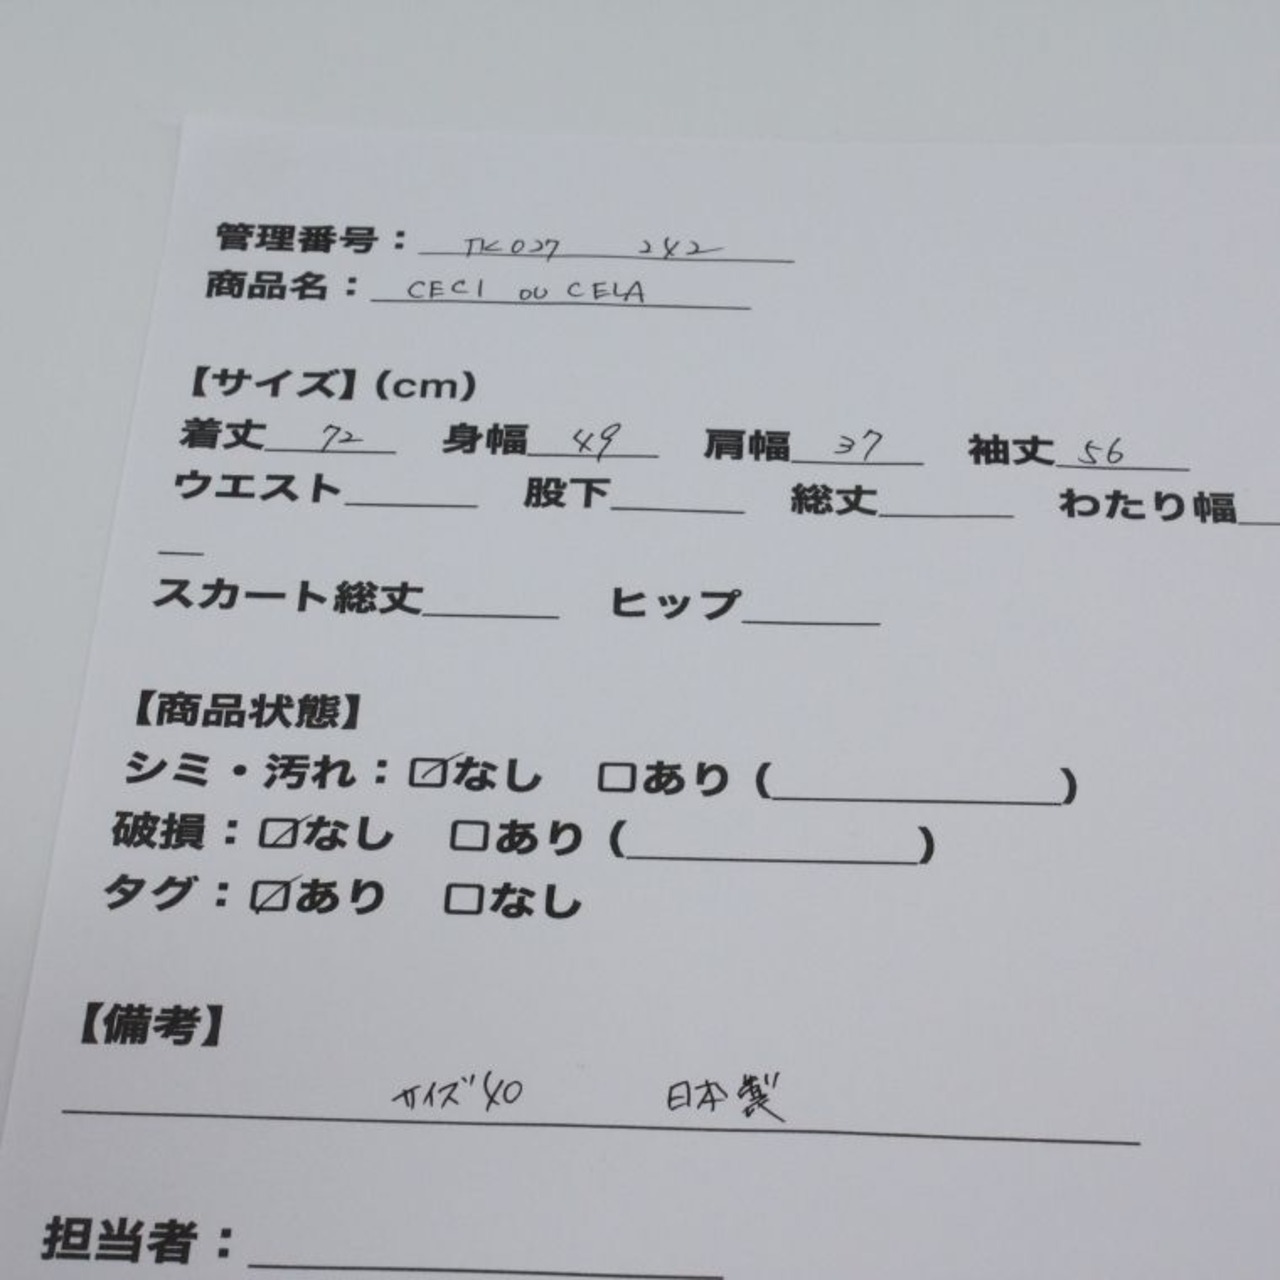 管理番号：TK027 242
商品名：CECI OU CELA
【サイズ】(cm)
着丈 72 身幅 49 肩幅 37 袖丈 56
ウエスト____ 股下____ 総丈____ わたり幅__
__
スカート総丈____ ヒップ____
【商品状態】
シミ・汚れ：☑なし □あり (________)
破損：☑なし □あり (________)
タグ：☑あり □なし
【備考】
サイズ40 日本製
担当者：________